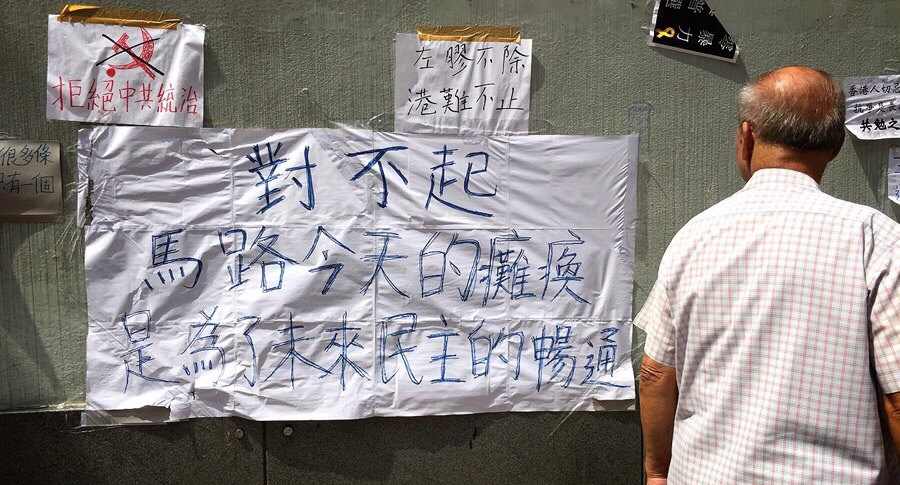 拒絕中共統治
左膠不除
港難不止
暴力
很多條
有一個
對不起
馬路今天的癱瘓
是為了未來民主的暢通
香港人切忌
共勉之